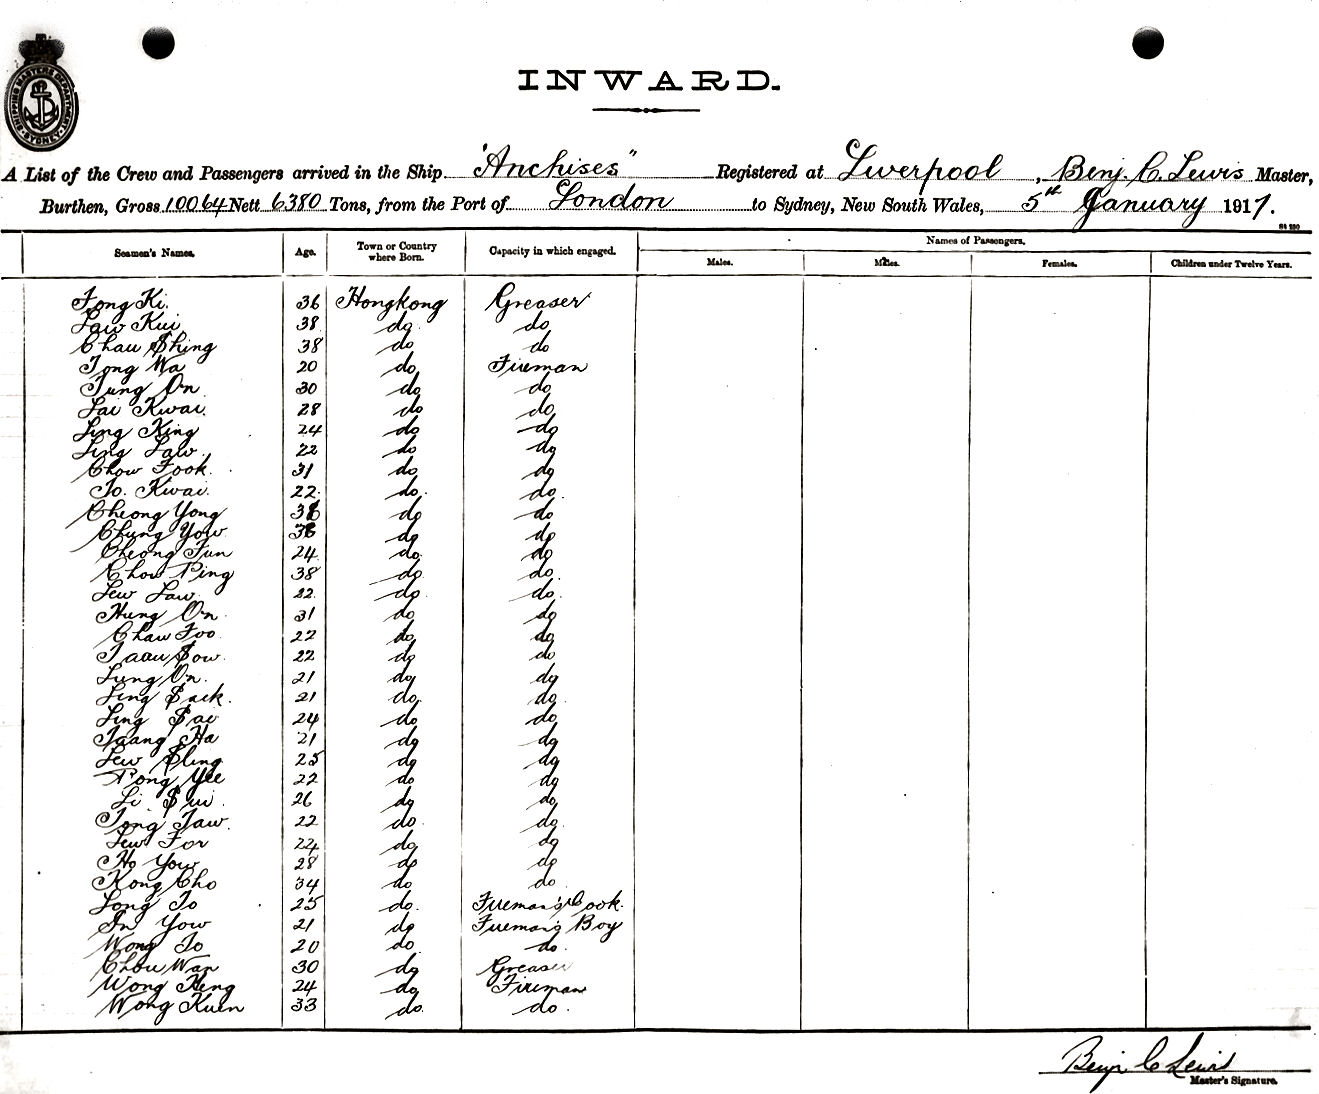 SHIPPING MASTERS DEPARTMENT SYDNEY
INWARD.
A List of the Crew and Passengers arrived in the Ship "Anchises" Registered at Liverpool, Benj. C. Lewis Master,
Burthen, Gross 10064 Nett 6380 Tons, from the Port of London to Sydney, New South Wales, 5th January 1917.
Names of Passengers.
Seamen's Names. Age. Town or Country where Born. Capacity in which engaged. Males. Females. Children under Twelve Years.
Fong Ki. 36 Hongkong Greaser
Law Kui 38 do. do
Chau Shing 38 do do
Tong Wa 20 do Fireman
Tung On 30 do do
Lai Kwai. 28 do do
Ling King 24 do do
Ling Law. 22 do do
Chow Fook. 31 do do
To. Kwai. 22. do. do.
Cheong Yong do do
Chung Yow do do
Cheong Fun 24 do do
Chow Ping 38 do do.
Lew Law. 22. do. do.
Hung On. 31 do do
Chaw Foo 22 do do
Sow. 22 do do
Lung On. 21 do do
Ling Sack. 21 do. do
Ling Sae 24 do do
Tsang Ha 21 do do
Lew Sling 25 do do
Pong Yee 22 do do
Li Sui. 26 do do
Tong Taw. 22 do. do.
Lew For 22 do do
Ho Yow 28 do do
Kong Cho 34 do do
Long To 25 do. Fireman's Cook.
In Yow 21 do Fireman's Boy
Wong To 20 do do.
Chow Wan 30 do Greaser
Wong Keng 24 do Fireman
Wong Kuen 33 do. do.
Benj C Lewis
Master's Signature.